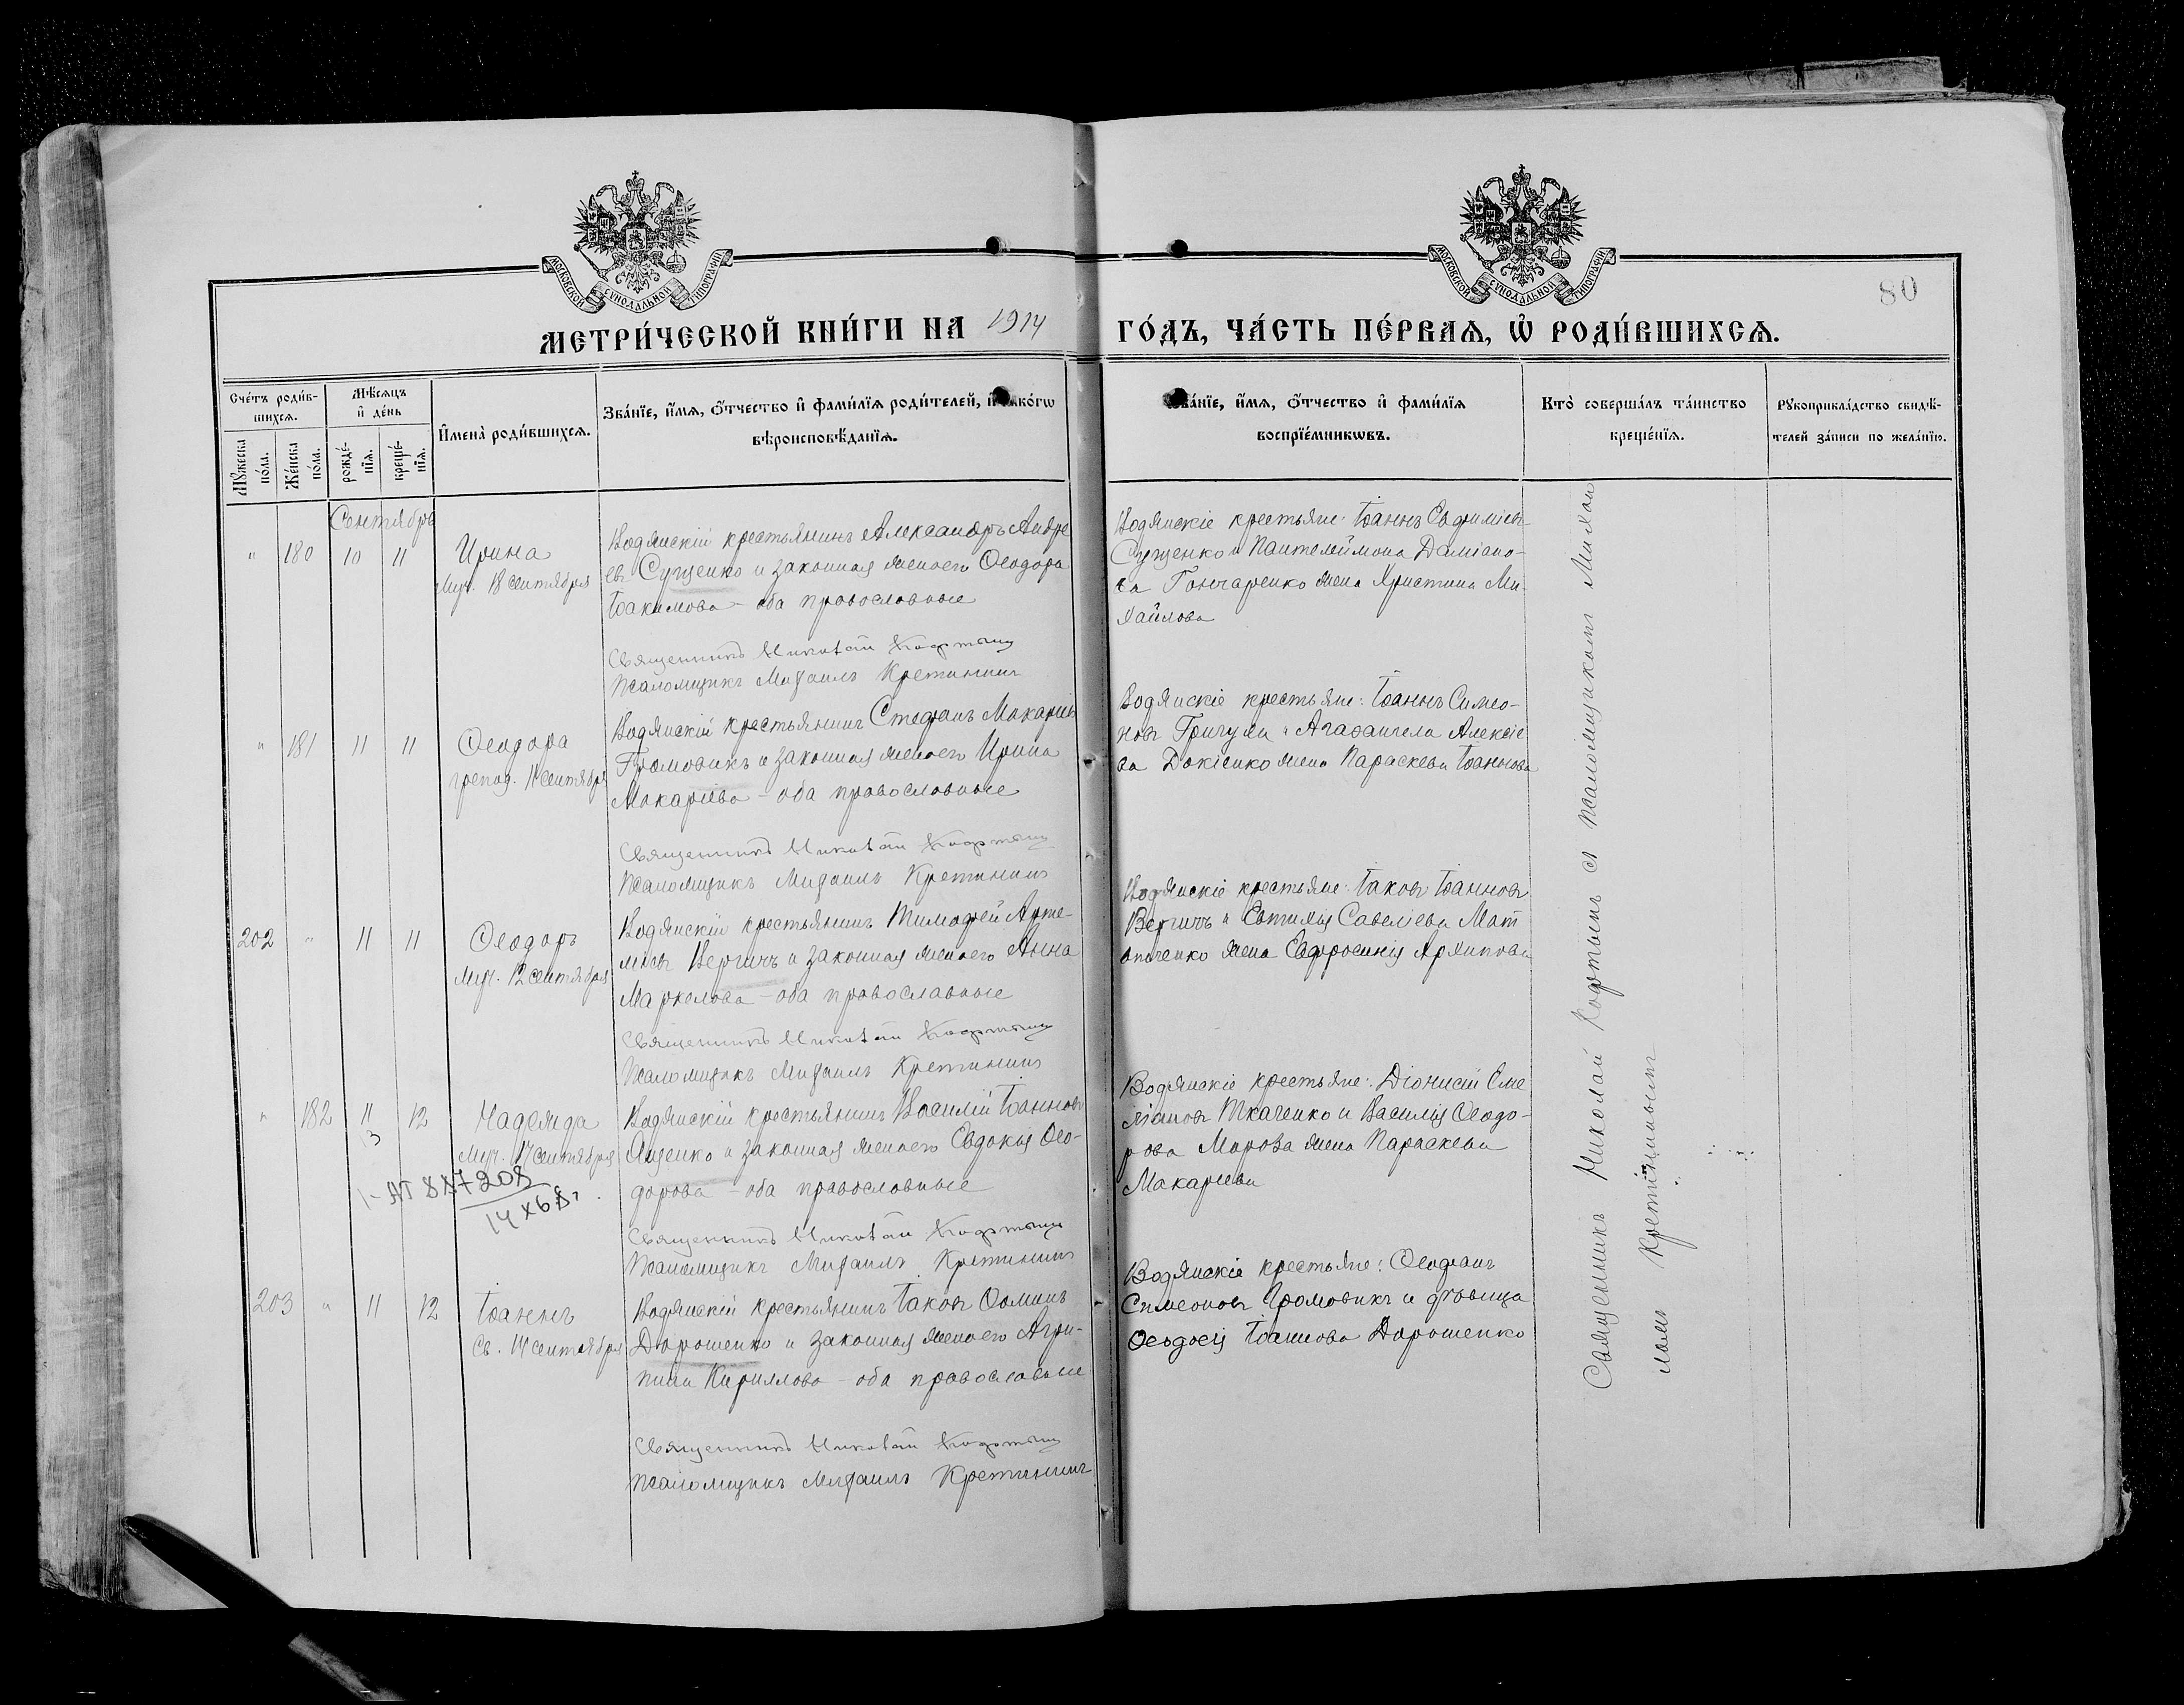 МОСКОВСКОЙ СѴНОДАЛЬНОЙ ТИПОГРАФІИ
МОСКОВСКОЙ СѴНОДАЛЬНОЙ ТИПОГРАФІИ
80
МЕТРИ́ЧЕСКОЙ КНИ́ГИ НА 1914 ГО́ДЪ, ЧА́СТЬ ПЕ́РВАѦ, Ѡ҆ РОДИ́ВШИХСѦ.
Сче́тъ роди́в-
шихсѧ.
Мꙋ́жеска
по́ла.
Же́нска
по́ла.
Мѣ́сѧцъ
и҆ де́нь
рожде́-
нїѧ.
креще́-
нїѧ.
И҆мена̀ роди́вшихсѧ.
Зва́нїе, и҆́мѧ, ѻ҆́тчество и҆ фами́лїѧ роди́телей, и҆ како́гѡ
вѣроисповѣ́данїѧ.
Зва́нїе, и҆́мѧ, ѻ҆́тчество и҆ фами́лїѧ
воспрїе́мникѡвъ.
Кто̀ соверша́лъ та́инство
креще́нїѧ.
Рꙋкоприкла́дство свидѣ́-
телей за́писи по жела́нїю.
Сентябрь
" 180 10 11 Ирина
Муч. 18 сентября
Водянскій крестьянинъ Александръ Андре
евъ Сущенко и законная жена его Ѳеодора
Іоакимова – оба православные
Священникъ Николай
Псаломщикъ Михаилъ Кретининъ
Водянскіе крестьяне: Іоаннъ Евфиміевъ
Сущенко и Пантелеймона Даміано-
ва Гончаренко жена Христина Ми-
хайлова
" 181 11 11 Ѳеодора
препод. 11 сентября
Водянскій крестьянинъ Стефанъ Макаріевъ
Громовикъ и законная жена его Ирина
Макаріева – оба православные
Священникъ Николай
Псаломщикъ Михаилъ Кретининъ
Водянскіе крестьяне: Іоаннъ Симео-
новъ Григула и Агафангела Алексіе
ва жена Параскева Іоаннова
202 " 11 11 Ѳеодоръ
Муч. 12 сентября
Водянскій крестьянинъ Тимофей Арте-
міевъ Вергичъ и законная жена его Анна
Маркелова – оба православные
Священникъ Николай
Псаломщикъ Михаилъ Кретининъ
Водянскіе крестьяне: Іаковъ Іоанновъ
Вергичъ и Евтихія Савеліева
жена Евфросинія Архипова
" 182 11 12 Надежда
3
Муч. 17 сентября
Водянскій крестьянинъ Василій Іоанновъ
Яценко и законная жена его Евдокія Ѳео-
дорова – оба православные
Священникъ Николай
Псаломщикъ Михаилъ Кретининъ
Водянскіе крестьяне: Діонисій Еме
ліановъ Ткаченко и Василія Ѳеодо-
рова Мороза жена Параскева
Макаріева
203 " 11 12 Іоаннъ
Св. 14 сентября
Водянскій крестьянинъ Іаковъ Ѳоминъ
Дорошенко и законная жена его Агри-
пина Кириллова – оба православные
Священникъ Николай
Псаломщикъ Михаилъ Кретининъ
Водянскіе крестьяне: Ѳеофанъ
Симеоновъ Громовикъ и дѣвица
Ѳеодосія Іоаннова Дорошенко
Священникъ Николай съ псаломщикомъ Михаи
ломъ Кретининымъ